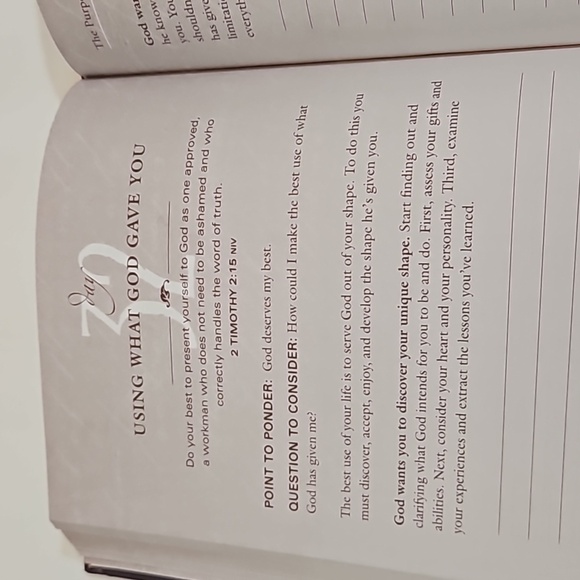 day
32
USING WHAT GOD GAVE YOU
Do your best to present yourself to God as one approved,
a workman who does not need to be ashamed and who
correctly handles the word of truth.
2 TIMOTHY 2:15 NIV
POINT TO PONDER: God deserves my best.
QUESTION TO CONSIDER: How could I make the best use of what
God has given me?
The best use of your life is to serve God out of your shape. To do this you
must discover, accept, enjoy, and develop the shape he's given you.
God wants you to discover your unique shape. Start finding out and
clarifying what God intends for you to be and do. First, assess your gifts and
abilities. Next, consider your heart and your personality. Third, examine
your experiences and extract the lessons you've learned.
The
God
he
you.
has